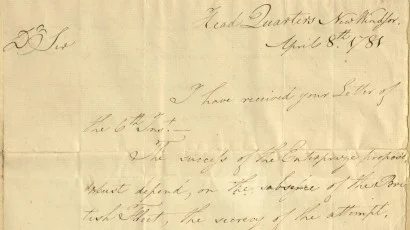 Head Quarters New Windsor.
April 8th. 1781
Dr Sir
I have received your Letter of
the 6th Inst.—
The success of the Enterprize proposed
must depend, on the absence of the Bri
tish Fleet, the secrecy of the attempt,